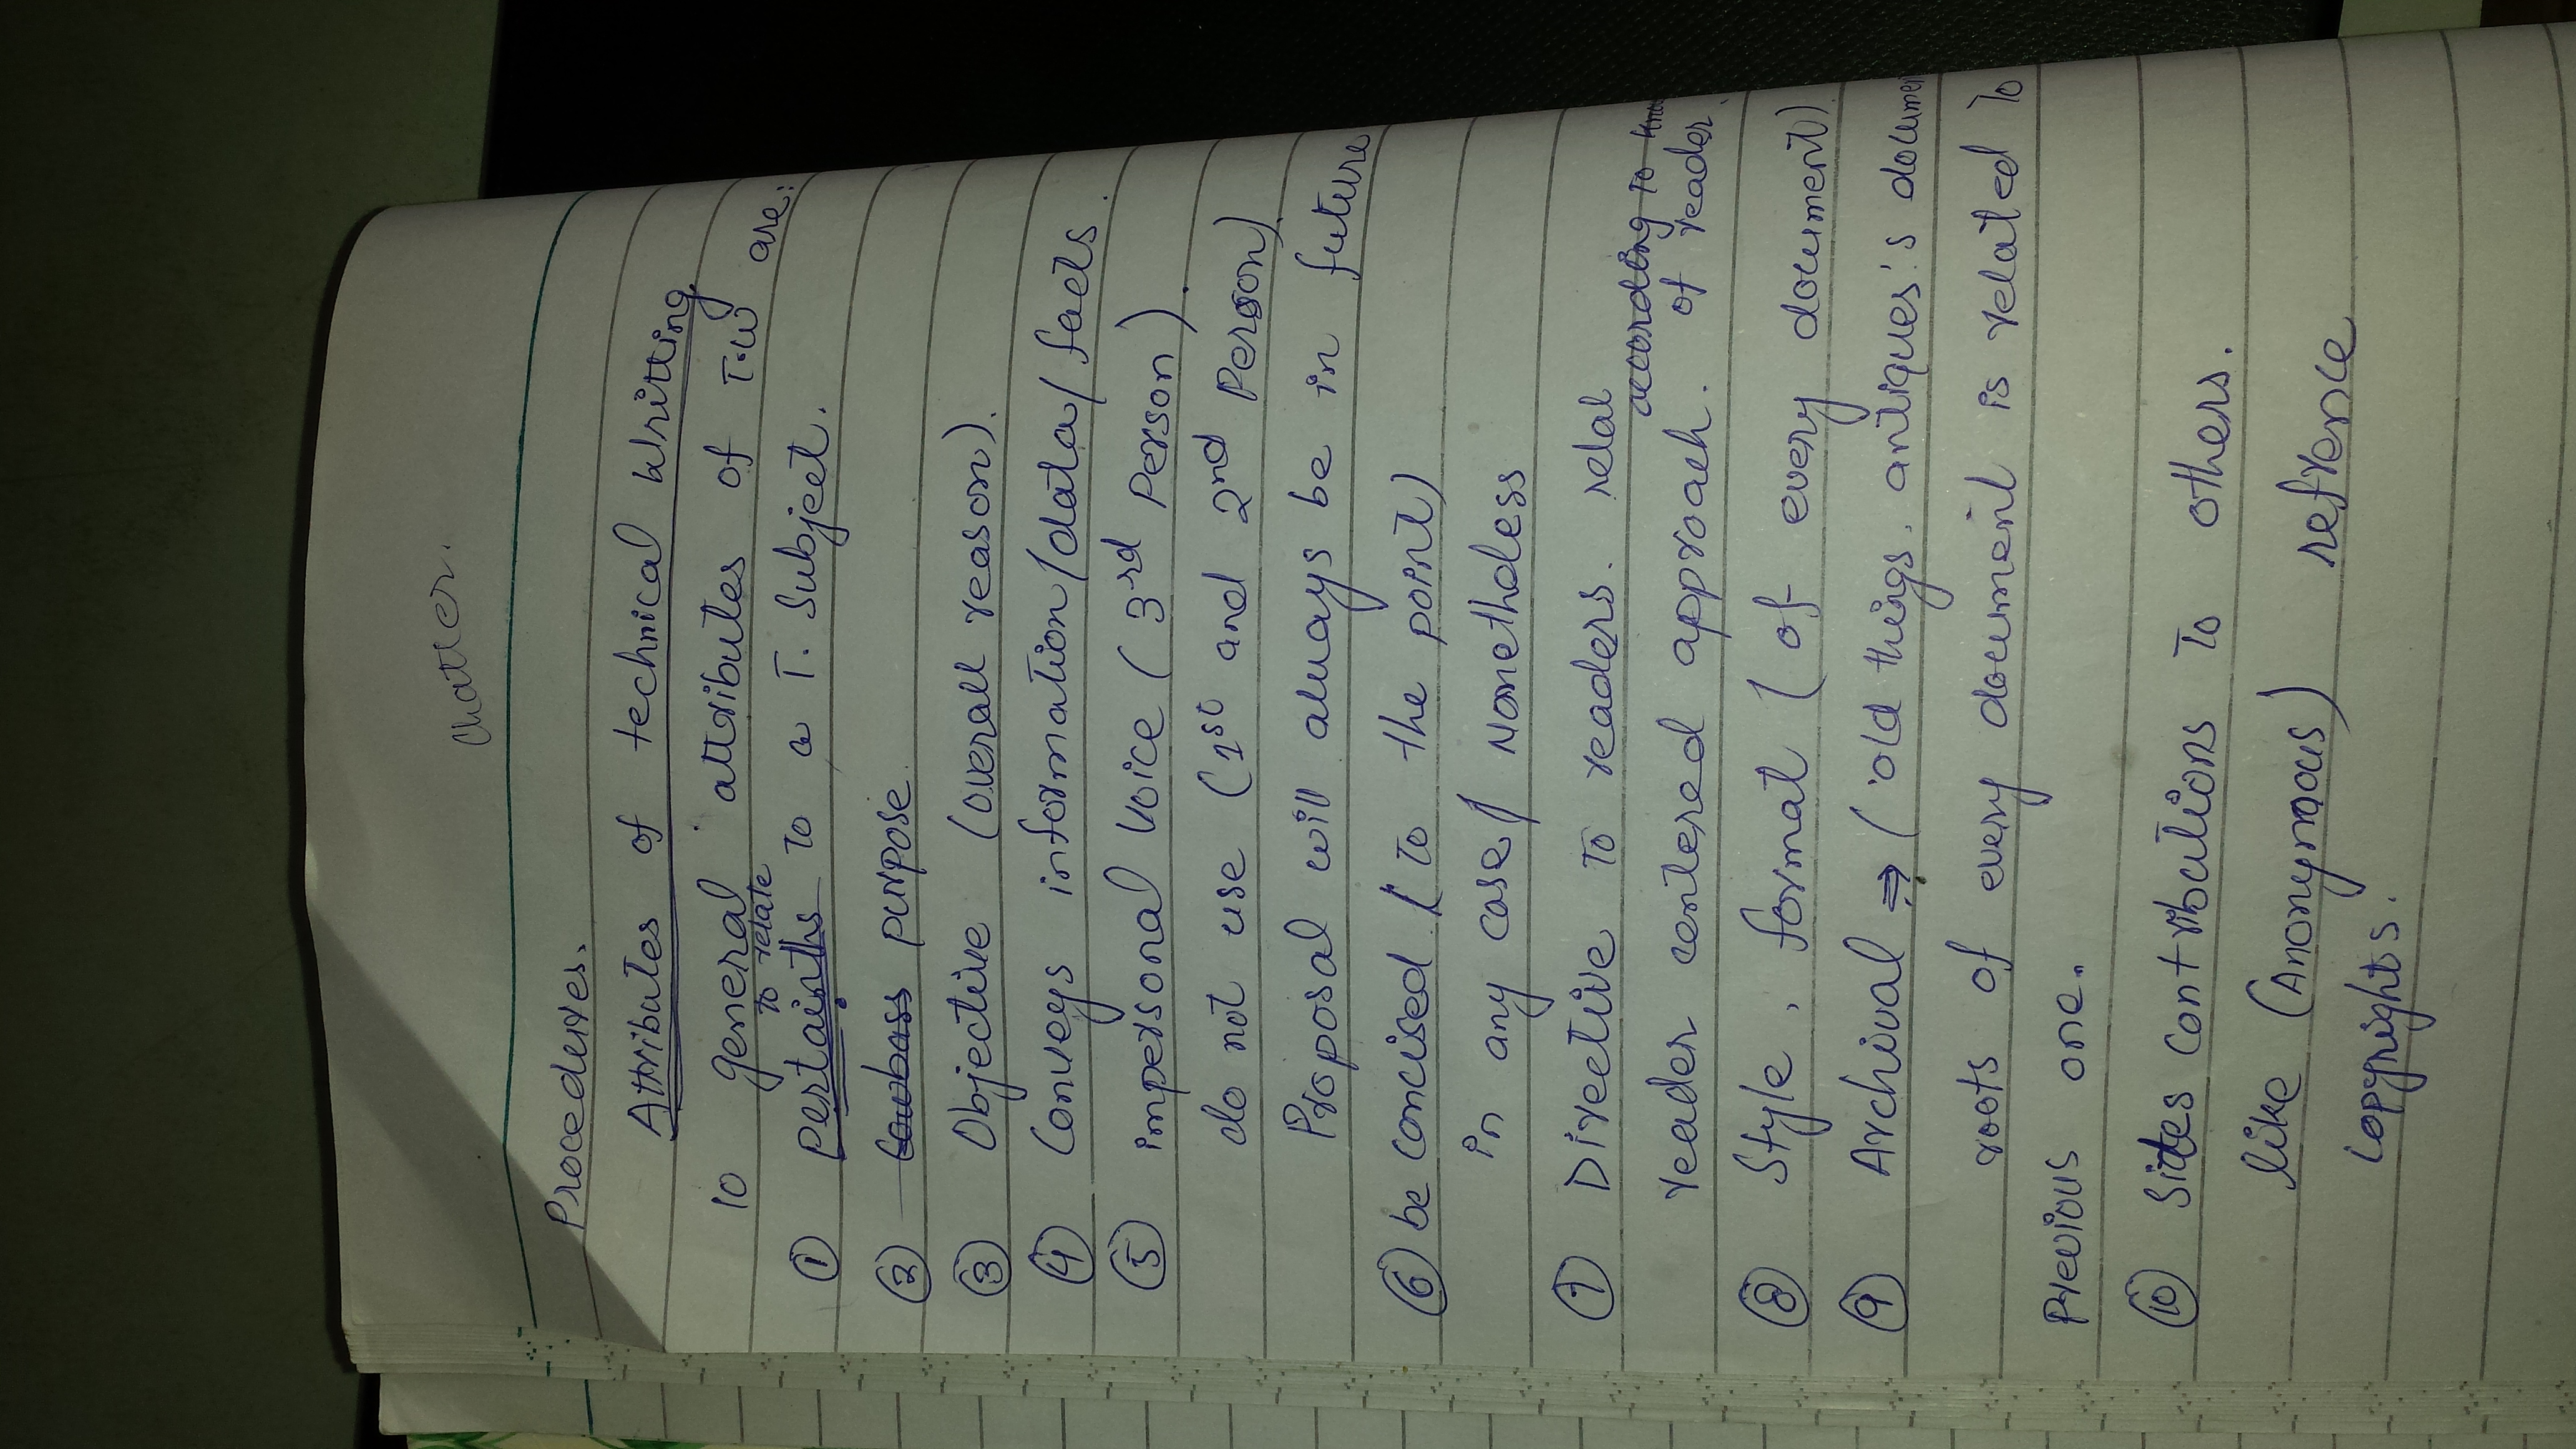 Chatter.
Procedures.
Attributes of technical Writting.
10 general attributes of T.W are:
to relate
① pertainths to a T. Subject.
② purpose.
③ Objective (overall reason).
④ Conveys information/data/facts.
⑤ impersonal voice (3rd Person).
do not use (1st and 2nd Person).
Proposal will always be in future
⑥ be concised (to the point)
in any case/ Nonetheless
⑦ Directive to readers. relat
according to kno
reader centered approach. of reader.
⑧ Style, format (of every document).
⑨ Archival ⇒ (old things, antiques's documen
roots of every document is related to
previous one.
⑩ Sites contributions to others.
like (Anonymous) refrence
copyrights.